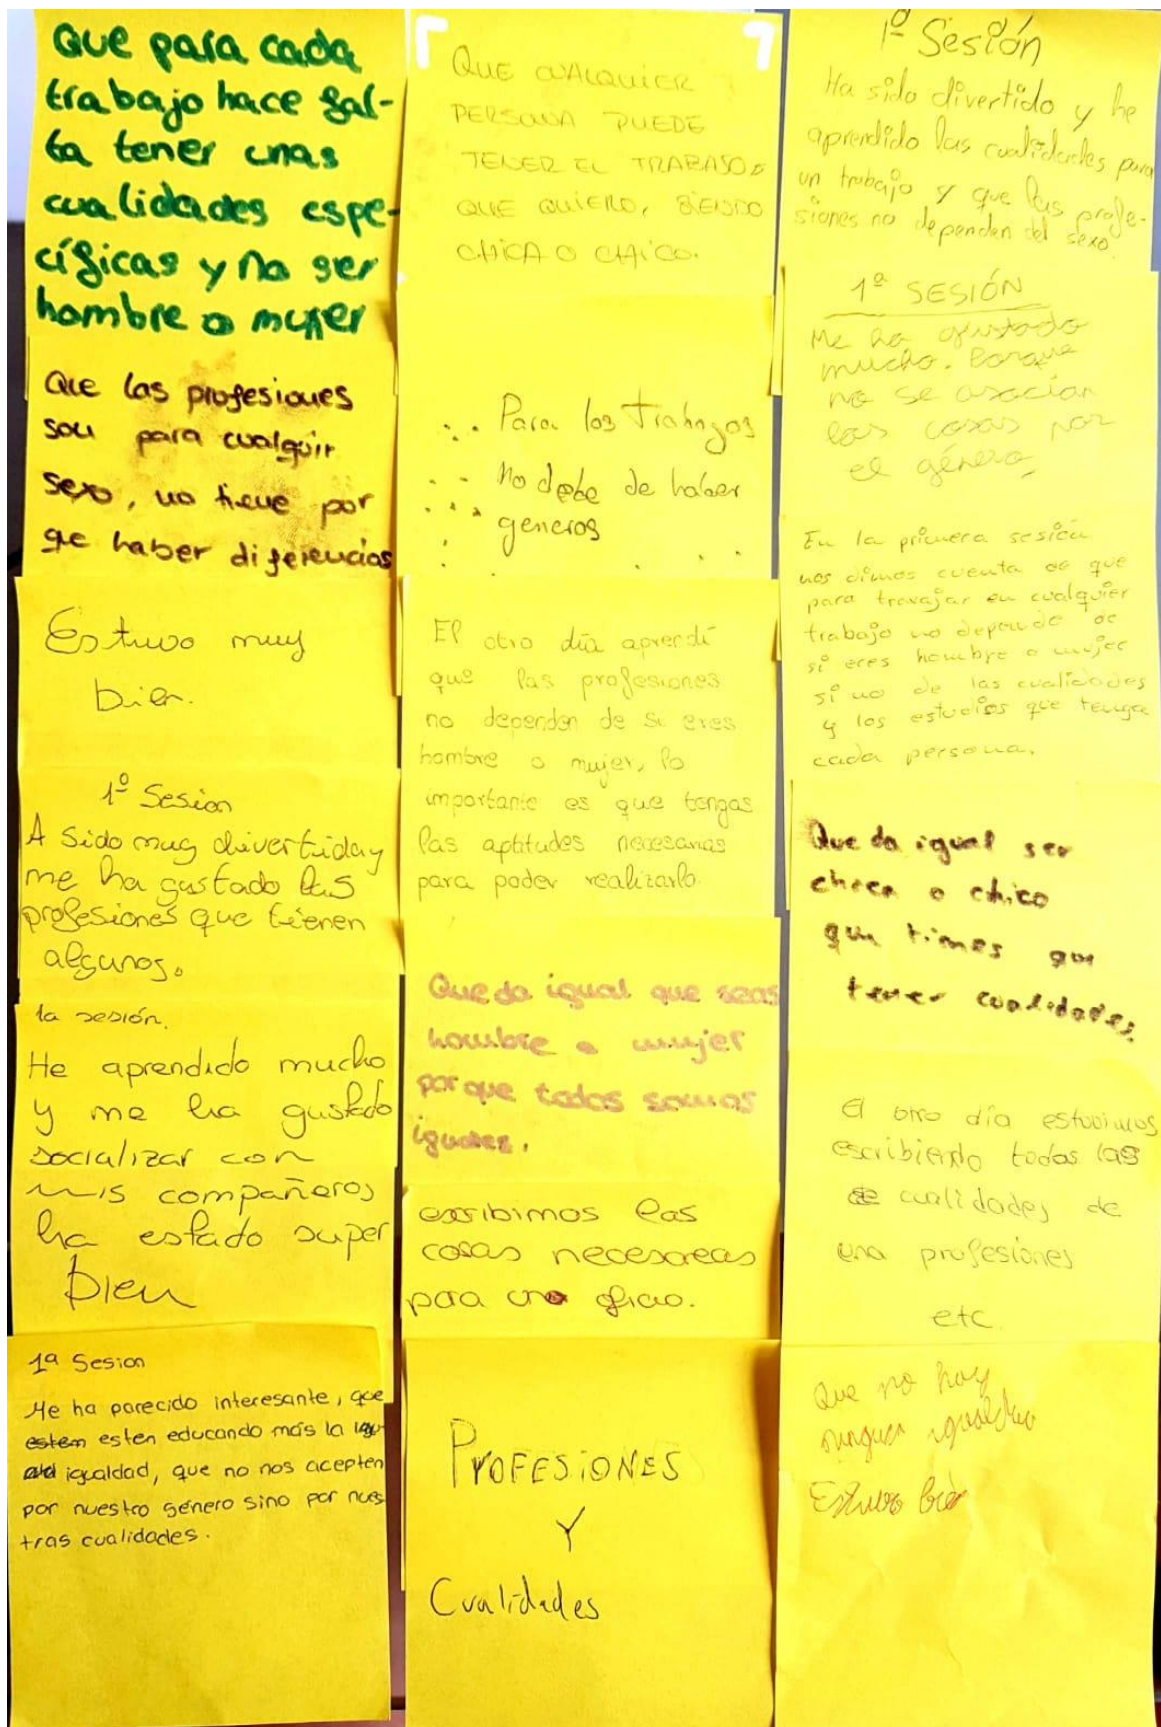 Que para cada
trabajo hace fal-
ta tener unas
cualidades espe-
cíficas y no ser
hombre o mujer
Que las profesiones
son para cualquir
sexo, no tiene por
que haber diferencias
Estuvo muy
bien.
1º Sesion
A sido muy divertida y
me ha gustado las
profesiones que tienen
algunos.
1a sesión.
He aprendido mucho
y me ha gustado
socializar con
mis compañeros
ha estado super
bien
1ª Sesion
Me ha parecido interesante, que
esten educando más la
igualdad, que no nos acepten
por nuestro género sino por nues
tras cualidades.
QUE CUALQUIER
PERSONA PUEDE
TENER EL TRABAJO
QUE QUIERO, SIENDO
CHICA O CHICO.
Para los trabajos
no debe de haber
generos
El otro día aprendí
que las profesiones
no dependen de si eres
hombre o mujer, lo
importante es que tengas
las aptitudes necesarias
para poder realizarlo.
Que da igual que seas
hombre o mujer
porque todos somos
iguales.
escribimos las
cosas necesareas
para un oficio.
PROFESIONES
Y
Cualidades
1º Sesión
Ha sido divertido y he
aprendido las cualidades para
un trabajo y que las profe-
siones no dependen del sexo.
1ª SESIÓN
Me ha gustado
mucho. Porque
no se asocian
las cosas por
el género.
En la primera sesión
nos dimos cuenta de que
para travajar en cualquier
trabajo no depende de
si eres hombre o mujer
si no de las cualidades
y los estudios que tenga
cada persona.
Que da igual ser
chica o chico
que tienes que
tener cualidades.
El otro día estuvimos
escribiendo todas las
cualidades de
una profesiones
etc.
Que no hay
ninguna igualdad
Estuvo bien